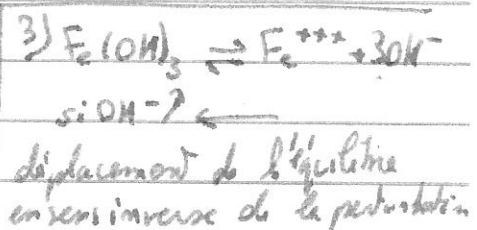 3) Fe(OH)₃ ⇌ Fe⁺⁺⁺ + 3OH⁻
si OH⁻ ↗ ←
déplacement de l'équilibre
en sens inverse de la perturbation